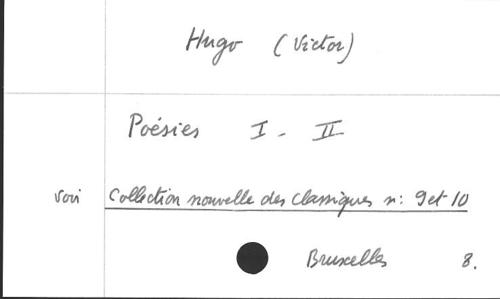 Hugo (Victor)
Poésies I - II
voir Collection nouvelle des classiques n: 9 et 10
Bruxelles 8.